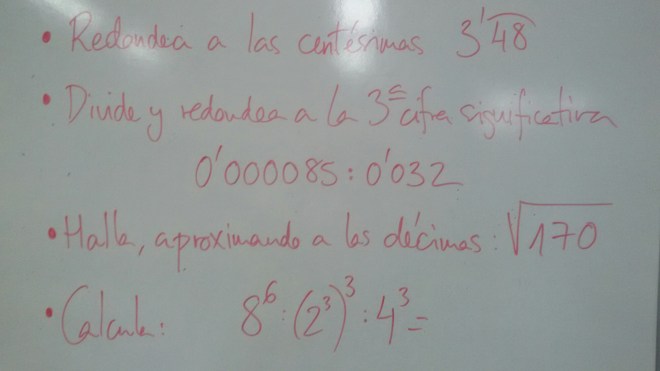 • Redondea a las centésimas 3'4̑8̑
• Divide y redondea a la 3ª cifra significativa
0'000085 : 0'032
• Halla, aproximando a las décimas: √170
• Calcula: 8⁶ : (2³)³ : 4³ =